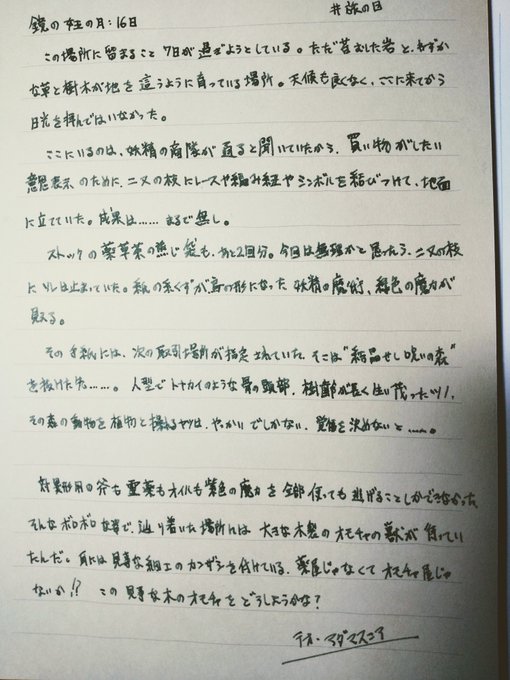 鏡の女王の月:16日
#旅の日
この場所に留まること7日が過ぎようとしている。ただ苔むした岩と、わずか
な草と樹木が地を這うように育っている場所。天候も良くなく、ここに来てから
日光を拝んではいなかった。
ここにいるのは、妖精の商隊が通ると聞いていたから、買い物がしたい
意思表示のために、二又の枝にレースや組み紐やシンボルを結びつけて、地面
に立てていた。成果は……まるで無し。
ストックの薬草茶の煎じ袋も、あと2回分。今日は無理かと思ったら、二又の枝
に止まっていた。紙の糸くずが鳥の形になった妖精の魔術、緑色の魔力が
見える。
その手紙には、次の取引場所が指定されていた。そこは“結晶せし呪いの森”
を抜けた先……。人型でトナカイのような骨の頭部、樹節が長く生い茂ったツノ、
その森の動物を植物と操るヤツは、やっかいでしかない、覚悟を決めないと……。
対異形用の斧も霊薬もオイルも紫色の魔力を全部使っても逃げることしかできなかった
そんなボロボロな姿で、辿り着いた場所には大きな木製のオモチャの獣が待ってい
たんだ。耳には見事な細工のカンザシを付けている、薬屋じゃなくてオモチャ屋じゃ
ないか!? この見事な木のオモチャをどうしようかな?
テオ・アダマスニア